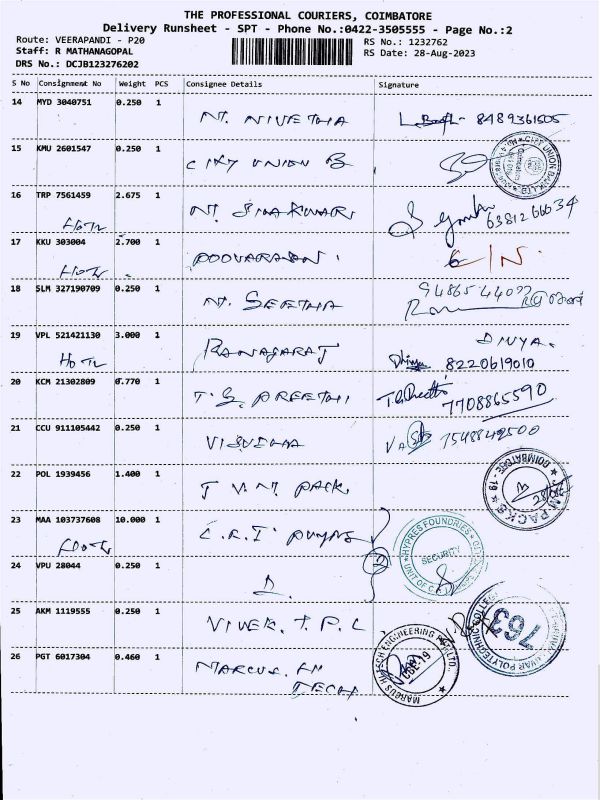 THE PROFESSIONAL COURIERS, COIMBATORE
Delivery Runsheet - SPT - Phone No.:0422-3505555 - Page No.:2
Route: VEERAPANDI - P20
Staff: R MATHANAGOPAL
DRS No.: DCJB123276202
RS No.: 1232762
RS Date: 28-Aug-2023
S No Consignment No Weight PCS Consignee Details Signature
14 MYD 3040751 0.250 1
NT. NIVETHA 8489361505
15 KMU 2601547 0.250 1
CITY UNION B
CITY UNION BANK LTD
16 TRP 7561459 2.675 1
NT. SIVAKUMARI 6381266634
17 KKU 303004 2.700 1
POOVARASAN
18 SLM 327190709 0.250 1
NT. SEETHA
19 VPL 521421130 3.000 1
RANAGARAJ
DIVYA.
8220619010
20 KCM 21302809 0.770 1
T. S. PREETHI T.S.Preethi
7708865590
21 CCU 911105442 0.250 1
7548842500
22 POL 1939456 1.400 1
J V. NT. PACK.
COIMBATORE - 19
PACKS
23 MAA 103737608 10.000 1
C.R.I PUMPS
HYPRES FOUNDRIES
SECURITY
UNIT OF C
2
24 VPU 28044 0.250 1
25 AKM 1119555 0.250 1
VIVEK. T. P. L
POLYTECHNIC COLLEGE
763
26 PGT 6017304 0.460 1
MARCUS. HI
TECH
ENGINEERING
CBE-19